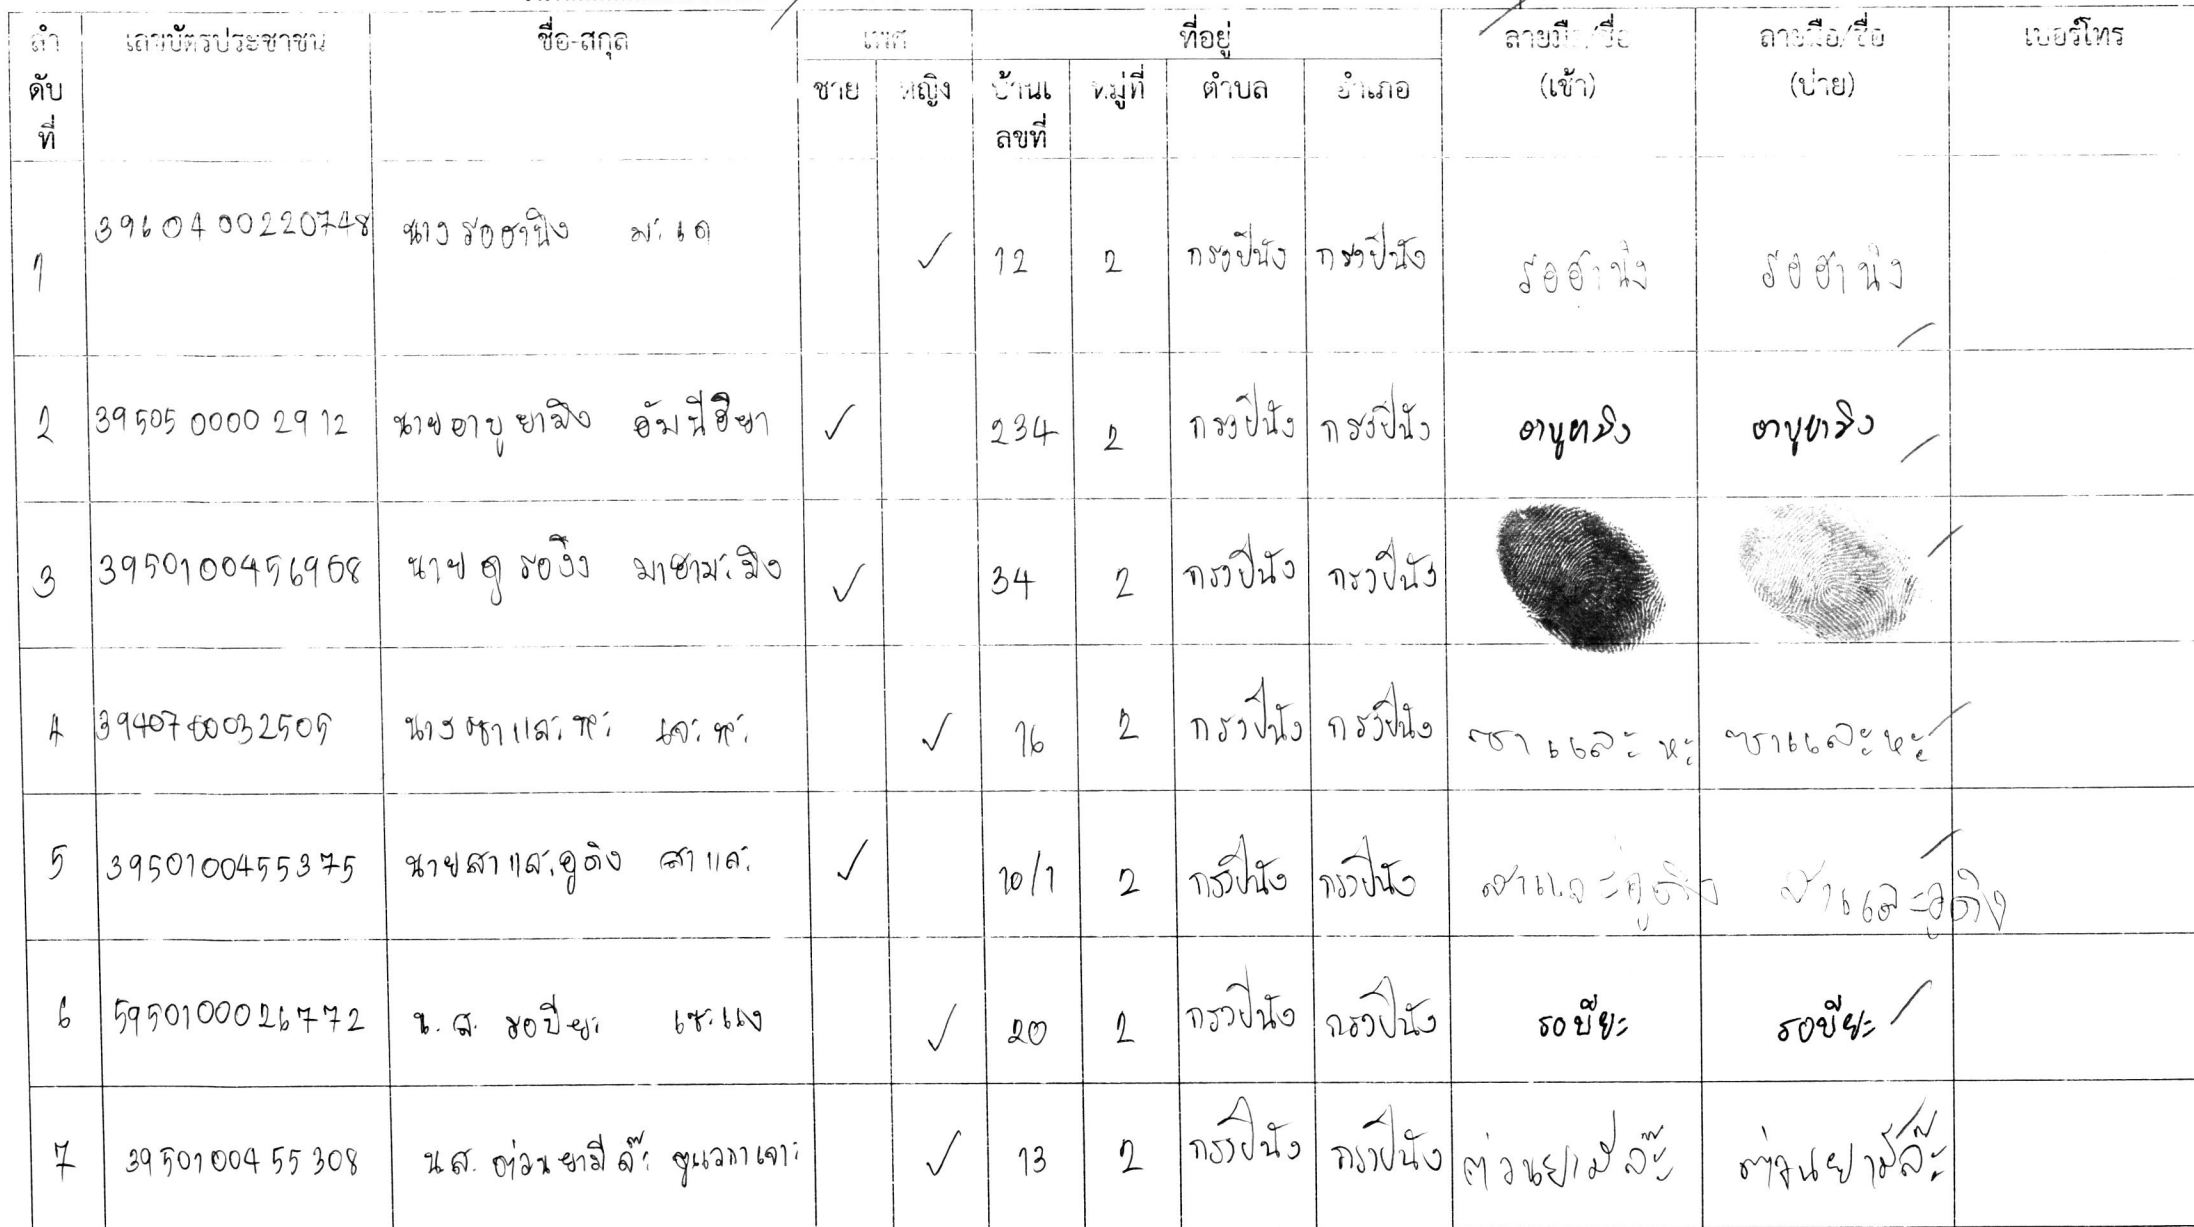 ลำดับที่ เลขบัตรประชาชน ชื่อ-สกุล เพศ ที่อยู่ ลายมือ/ชื่อ (เช้า) ลายมือ/ชื่อ (บ่าย) เบอร์โทร
ชาย หญิง บ้านเลขที่ หมู่ที่ ตำบล อำเภอ
1 3960400220748 นาง รอฮานิง มะเด ✓ 12 2 กรงปินัง กรงปินัง รอฮานิง รอฮานิง
2 3950500002912 นายอาบูยามิง อัมนีฮียา ✓ 234 2 กรงปินัง กรงปินัง อาบูยามิง อาบูยามิง
3 3950100456968 นาย ✓ 34 2 กรงปินัง กรงปินัง
4 3940760032505 นางซาและหะ ✓ 16 2 กรงปินัง กรงปินัง ซาและหะ ซาและหะ
5 3950100455375 นายสาและอูดิง สาและ ✓ 10/1 2 กรงปินัง กรงปินัง สาและอูดิง สาและอูดิง
6 5950100026772 น.ส. รอบียะ เซะแง ✓ 20 2 กรงปินัง กรงปินัง รอบียะ รอบียะ
7 3950100455308 น.ส. ต่วนยามีล๊ะ ✓ 13 2 กรงปินัง กรงปินัง ต่วนยามีล๊ะ ต่วนยามีล๊ะ